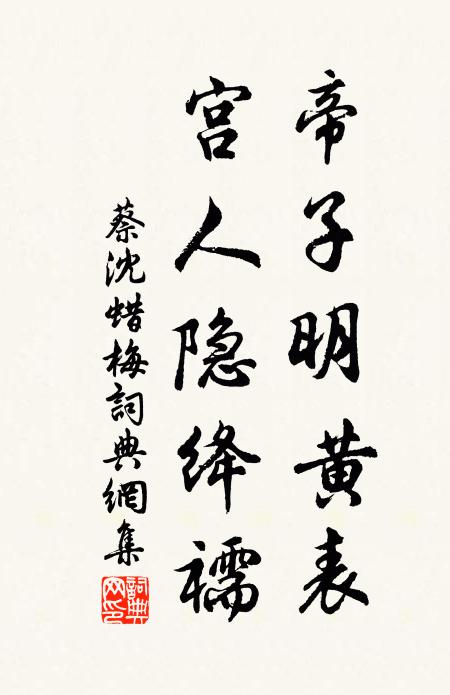 帝子明黄表
宫人隐绛襦
蔡沈蜡梅詞典網集
詞典网印